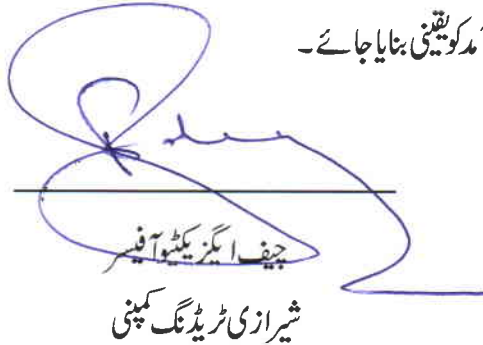 مد کو یقینی بنایا جائے۔
چیف ایگزیکٹیو آفیسر
شیرازی ٹریڈنگ کمپنی